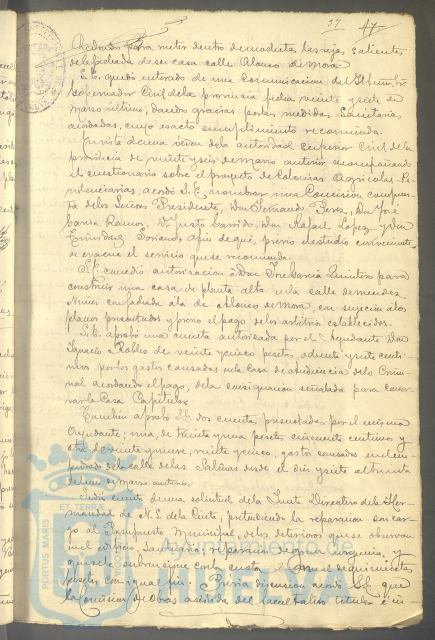 17 17
para meter dentro de
de la fachada de su casa calle Alonso de Mora
S.E. quedó enterado de una comunicacion del Sr.
Gobernador Civil de la provincia fecha veinte y siete de
marzo último, dando gracias por las medidas Sanitarias
acordadas, cuyo exacto cumplimiento recomienda.
En vista de una orden de la autoridad superior Civil de la
provincia de veinte y seis de marzo anterior acompañando
el cuestionario sobre el proyecto de Colonias Agricolas Pe-
nitenciarias, acordó S.E. nombrar una Comision compues-
ta de los Señores Presidente, Don Fernando Perez, Don José
Garcia Ramos, Dn Justo Garrido, Don Rafael Lopez y Don
Soriano á fin de que, previo el estudio conveniente
se evacue el servicio que se recomienda.
S.E. concedió autorizacion á Don José Garcia Quintero para
construir una casa de planta alta en la calle de Mendez
Nuñez con fachada á la de Alonso de Mora, con sujecion á los
planos presentados y previo el pago de los arbitrios establecidos.
S.E. aprobó una cuenta autorizada por el Ayudante Don
Ignacio Robles de veinte y cinco pesetas ochenta y siete centi-
mos por los gastos causados en la Casa de audiencia de lo Crimi-
nal acordando el pago, de la consignacion señalada para conser-
var la Casa Capitular.
Tambien aprobó S.E. dos cuentas presentadas por el mismo
Ayudante; una, de treinta y una pesetas cincuenta centimos y
otra de veinte y nueve, veinte y cinco, gastos causados en el em-
pedrado de la calle de las Salinas desde el diez y siete al treinta
de marzo anterior.
Dióse cuenta de una solicitud de la Junta Directiva de la Her-
mandad de N.S. de la Cinta, pretendiendo la reparacion con car-
go al Presupuesto Municipal, de los deterioros que se observan
en el edificio, las reparaciones de gran urgencia, y
que se le subvencione con la cuota anual de quinientas
pesetas con igual fin. Previa discusion acordó S.E. que
la Comision de Obras asistida del facultativo titular é in-
PORTUS MARIS
ET TERRE
Ayuntamiento de
HUELVA